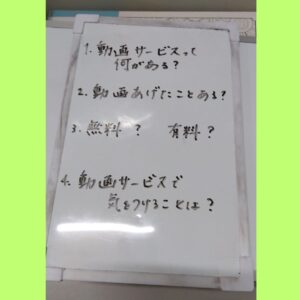 1. 動画サービスって
何がある?
2. 動画あげたことある?
3. 無料? 有料?
4. 動画サービスで
気をつけることは?